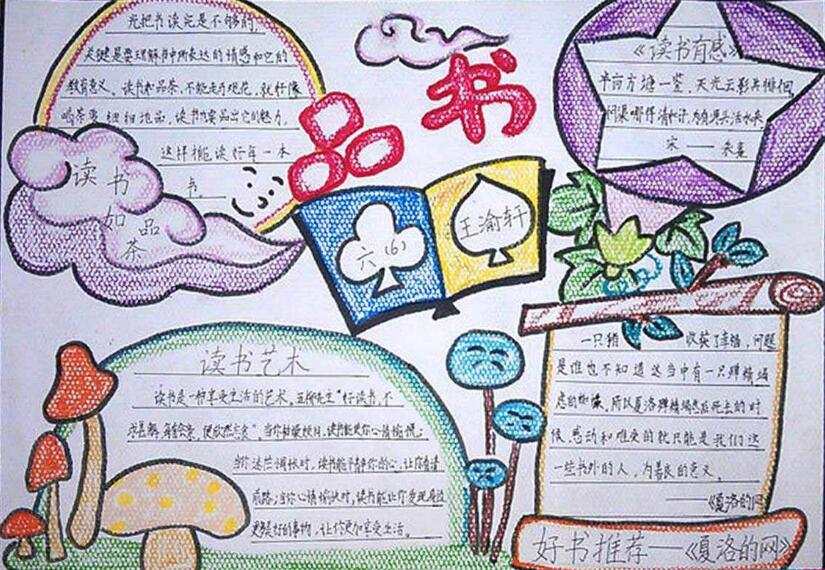 光把书读完是不够的,
关键是要理解书中所表达的情感和它的
教育意义。读书如品茶,不能走马观花,就好像
喝茶要细细地品,读书也要品出它的魅力,
这样才能读好每一本
书。
读书
如品
茶
品书
六(6)
王渝轩
《读书有感》
半亩方塘一鉴,天光云影共徘徊
问渠哪得清如许,为有源头活水来
宋——朱熹
读书艺术
读书是一种享受生活的艺术。五柳先生“好读书,不
求甚解,每有会意,便欣然忘食”。当你枯燥烦闷,读书能使你心情愉悦;
当你迷茫惆怅时,读书能平静你的心,让你看清
前路;当你心情愉快时,读书能让你发现身边
更美好的事物,让你更加享受生活。
一只猪 收获了幸福,问题
是谁也不知道这当中有一只蜘蛛焦
虑的
所以夏洛 死去的时
候,感动和难受的就只能是我们这
一些书外的人,为善良的意义。
——《夏洛的网
好书推荐——《夏洛的网》